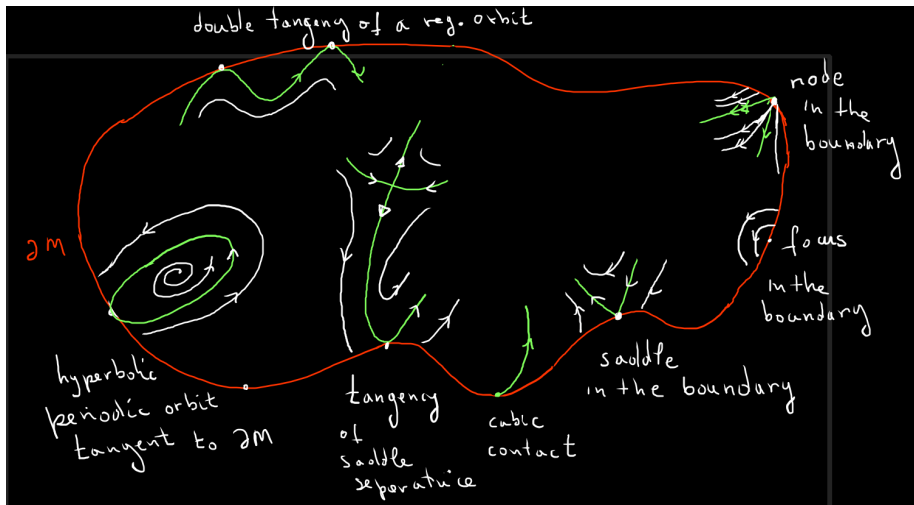 double tangeny of a reg. orbit
node
in the
boundary
∂M
focus
in the
boundary
hyperbolic
periodic orbit
tangent to ∂M
tangency
of
saddle
separatrice
cubic
contact
saddle
in the boundary